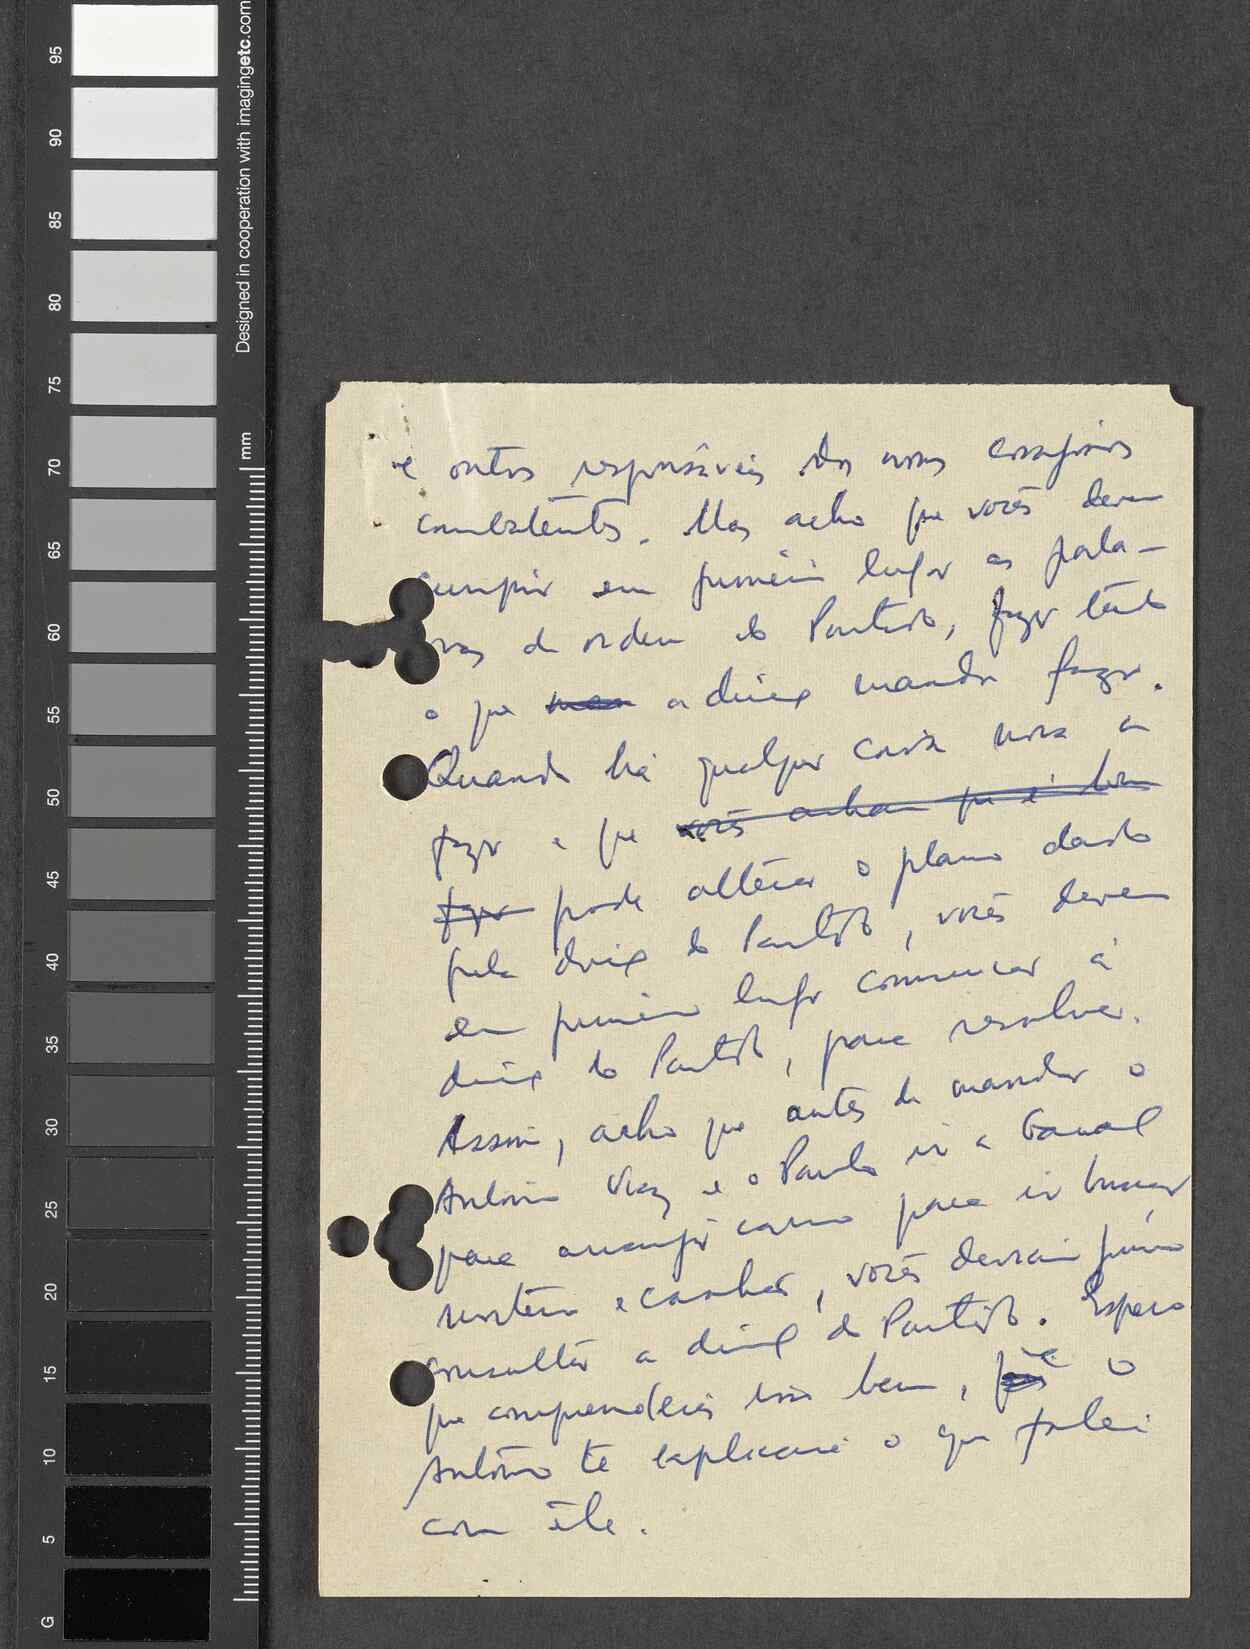 95
90
85
80
75
70
65
60
55
50
45
40
35
30
25
20
15
10
5
G
Designed in cooperation with imagingetc.com
mm
e outros responsáveis dos nossos corajosos
combatentes. Mas acho que vocês devem
cumprir em primeiro lugar as pala-
vras de ordem do Partido, fazer tudo
o que a direcç manda fazer.
Quando há qualquer coisa nova a
fazer e que vocês acham que é bom
fazer pode alterar o plano dado
pela direcç do Partido, vocês devem
em primeiro lugar comunicar à
direcç do Partido, para resolver.
Assim, acho que antes de mandar o
António Vaz e o Paulo ir a Ganal
para arranjar carro para ir buscar
morteiro e canhão, vocês deviam primeiro
consultar a direcç do Partido. Espero
que compreendeis isso bem, e o
António te explicará o que falei
com êle.